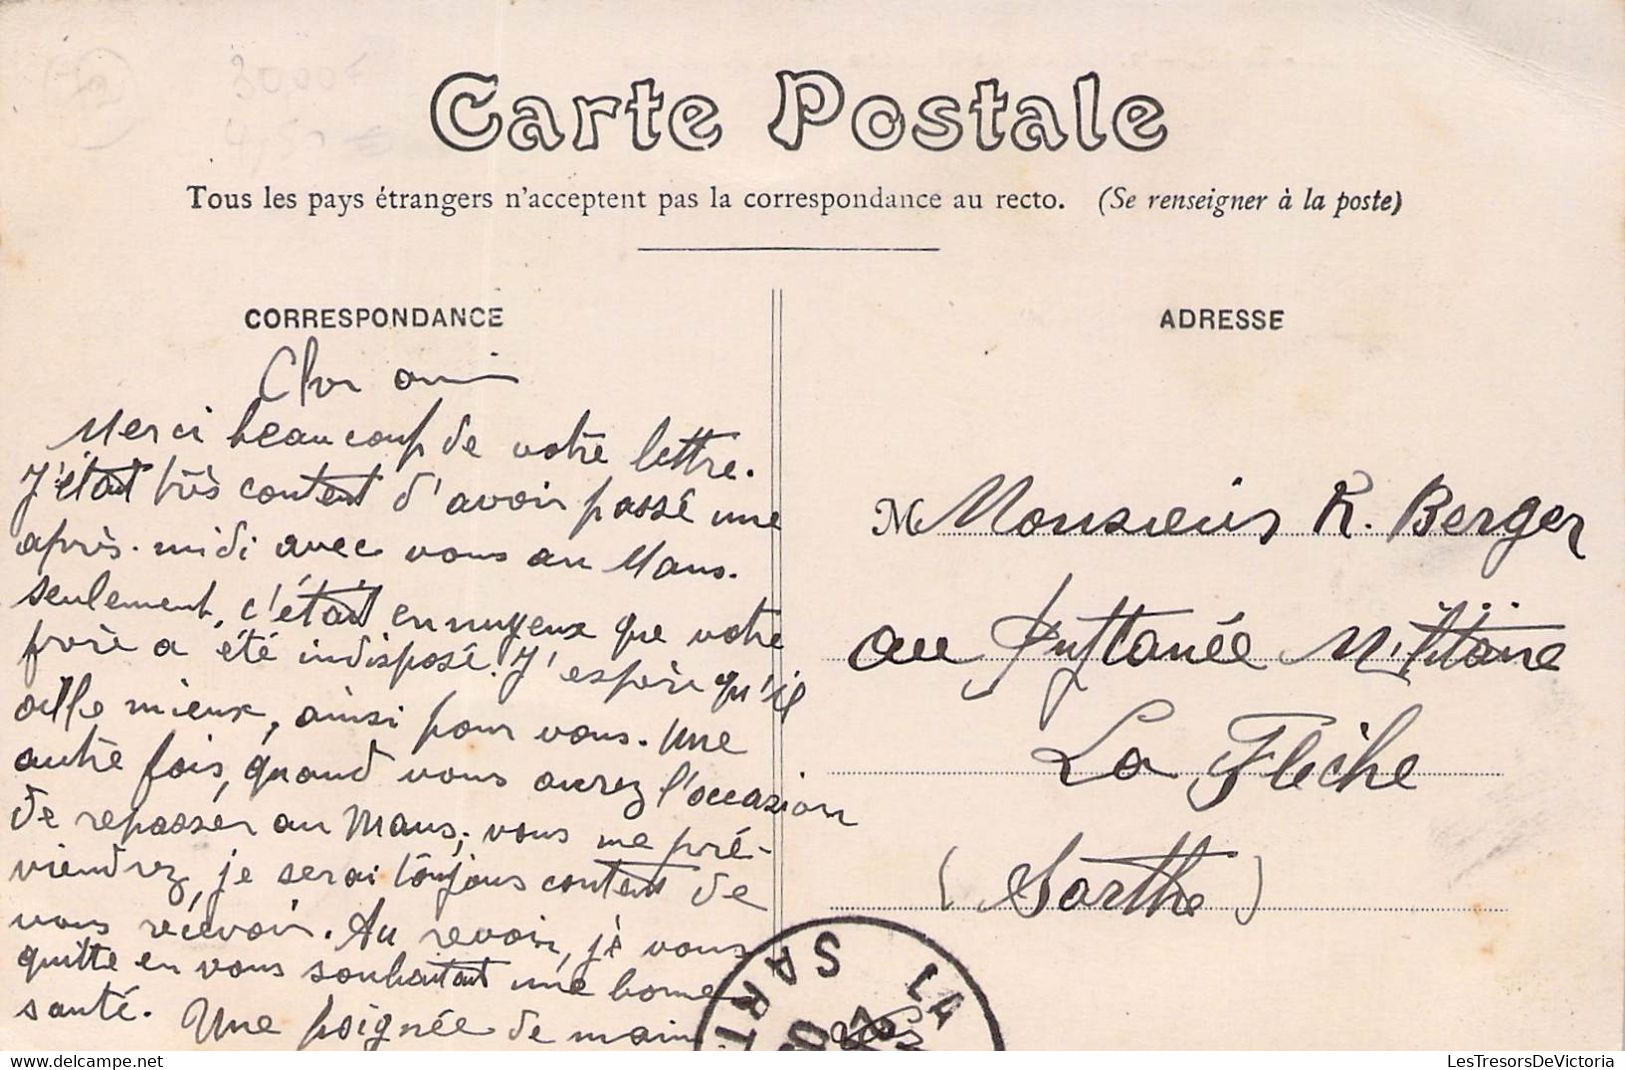 Carte Postale
Tous les pays étrangers n'acceptent pas la correspondance au recto. (Se renseigner à la poste)
CORRESPONDANCE
Cher ami
Merci beaucoup de votre lettre.
J'était très content d'avoir passé une
après-midi avec vous au Mans.
Seulement, c'était ennuyeux que votre
frère a été indisposé. J'espère qu'il
aille mieux, ainsi pour vous. Une
autre fois, quand vous aurez l'occasion
de repasser au Mans, vous me pré-
viendrez, je serai toujours content de
vous recevoir. Au revoir, je vous
quitte en vous souhaitant une bonne
santé. Une poignée de main
ADRESSE
M Monsieur R. Berger
au Prytanée Militaire
La Flèche
(Sarthe)
LA
SART
LesTresorsDeVictoria